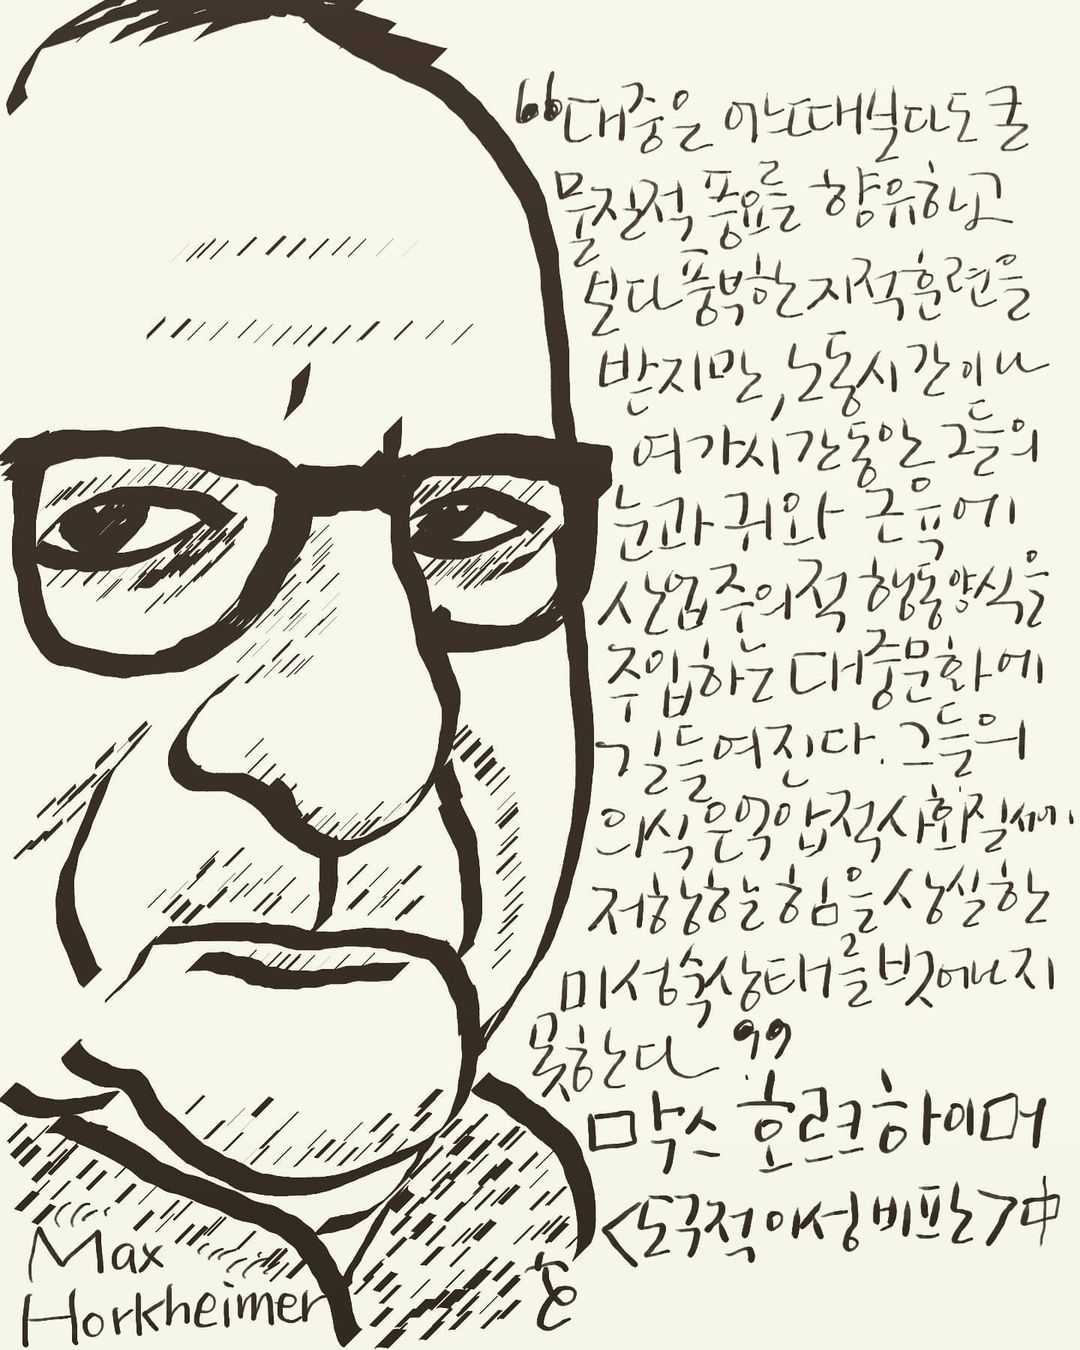 “대중은 어느때보다도 큰
물질적 풍요를 향유하고
보다 풍부한 지적훈련을
받지만, 노동시간이나
여가시간동안 그들의
눈과 귀와 근육에
산업주의적 행동양식을
주입하는 대중문화에
길들여진다. 그들의
의식은 억압적 사회질서에
저항할 힘을 상실한
미성숙상태를 벗어나지
못한다”
막스 호르크하이머
<도구적 이성 비판> 中
Max
Horkheimer